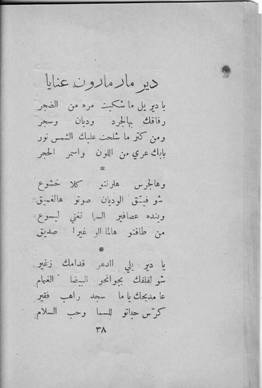 دير مار مارون عنايا
يا دير يلي ما شكيت مره من الضجر
رفاقك بهالجرد وديان وسجر
ومن كتر ما شلحت عليك الشمس نور
بابك عري من اللون واسمر الحجر
*
وهالجرس هلرنتو كلا خشوع
شو فيّق الوديان صوتو هالعميق
وبنده عصافير السما تغني ليسوع
من طاقتو هالما الو غيرا صديق
*
يا دير يلي الدهر قدامك زغير
شو لفلفك بجوانحو البيضا الغمام
عا مدبحك يا ما سجد راهب فقير
كرّس حياتو للسما وحب السلام
٣٨